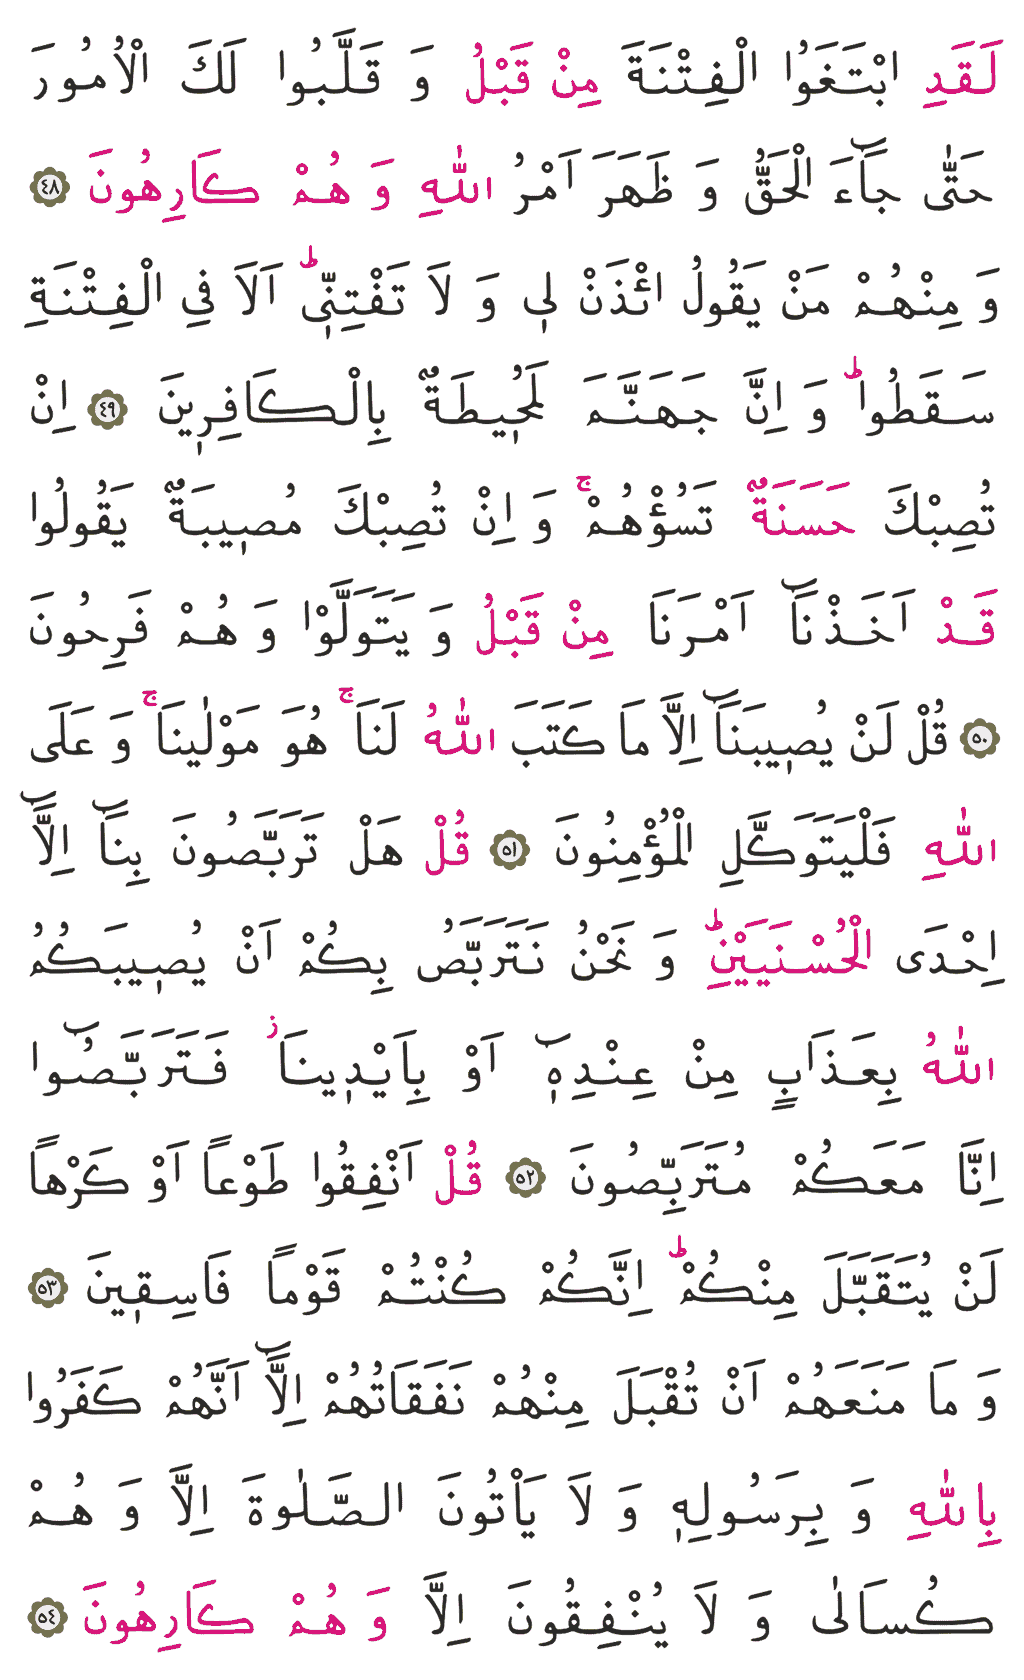 لَقَدِ ابْتَغَوُا الْفِتْنَةَ مِنْ قَبْلُ وَ قَلَّبُوا لَكَ الْاُمُورَ
حَتّٰى جَٓاءَ الْحَقُّ وَ ظَهَرَ اَمْرُ اللّٰهِ وَ هُمْ كَارِهُونَ ﴿٤٨﴾
وَ مِنْهُمْ مَنْ يَقُولُ ائْذَنْ لٖى وَ لَا تَفْتِنّٖىؕ اَلَا فِى الْفِتْنَةِ
سَقَطُواؕ وَ اِنَّ جَهَنَّمَ لَمُحٖيطَةٌ بِالْكَافِرٖينَ ﴿٤٩﴾ اِنْ
تُصِبْكَ حَسَنَةٌ تَسُؤْهُمْۚ وَ اِنْ تُصِبْكَ مُصٖيبَةٌ يَقُولُوا
قَدْ اَخَذْنَٓا اَمْرَنَا مِنْ قَبْلُ وَ يَتَوَلَّوْا وَ هُمْ فَرِحُونَ
﴿٥٠﴾ قُلْ لَنْ يُصٖيبَنَٓا اِلَّا مَا كَتَبَ اللّٰهُ لَنَاۚ هُوَ مَوْلٰينَاۚ وَ عَلَى
اللّٰهِ فَلْيَتَوَكَّلِ الْمُؤْمِنُونَ ﴿٥١﴾ قُلْ هَلْ تَرَبَّصُونَ بِنَٓا اِلَّٓا
اِحْدَى الْحُسْنَيَيْنِؕ وَ نَحْنُ نَتَرَبَّصُ بِكُمْ اَنْ يُصٖيبَكُمُ
اللّٰهُ بِعَذَابٍ مِنْ عِنْدِهٖٓ اَوْ بِاَيْدٖينَاؗ فَتَرَبَّصُٓوا
اِنَّا مَعَكُمْ مُتَرَبِّصُونَ ﴿٥٢﴾ قُلْ اَنْفِقُوا طَوْعاً اَوْ كَرْهاً
لَنْ يُتَقَبَّلَ مِنْكُمْؕ اِنَّكُمْ كُنْتُمْ قَوْماً فَاسِقٖينَ ﴿٥٣﴾
وَ مَا مَنَعَهُمْ اَنْ تُقْبَلَ مِنْهُمْ نَفَقَاتُهُمْ اِلَّٓا اَنَّهُمْ كَفَرُوا
بِاللّٰهِ وَ بِرَسُولِهٖ وَ لَا يَاْتُونَ الصَّلٰوةَ اِلَّا وَ هُمْ
كُسَالٰى وَ لَا يُنْفِقُونَ اِلَّا وَ هُمْ كَارِهُونَ ﴿٥٤﴾